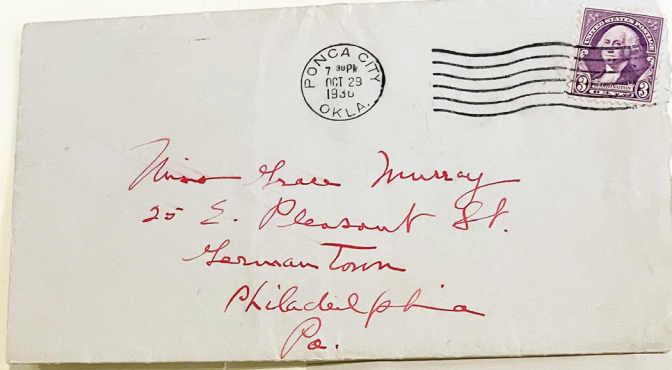 PONCA CITY
7 30 PM
OCT 29
1936
OKLA.
UNITED STATES POSTAGE
3 WASHINGTON 3
Miss Grace Murray
25 E. Pleasant St.
Germantown
Philadelphia
Pa.